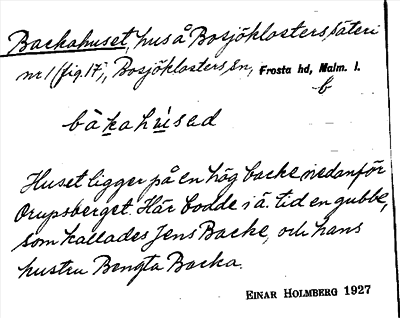 Backahuset, hus å Bosjöklosters säteri
nr 1 (fig. 17), Bosjöklosters sn, Frosta hd, Malm. l.
b
bàkahúsad
Huset ligger på en hög backe nedanför
Orupsberget. Här bodde i ä. tid en gubbe,
som kallades Jens Backe, och hans
hustru Bengta Backa.
EINAR HOLMBERG 1927